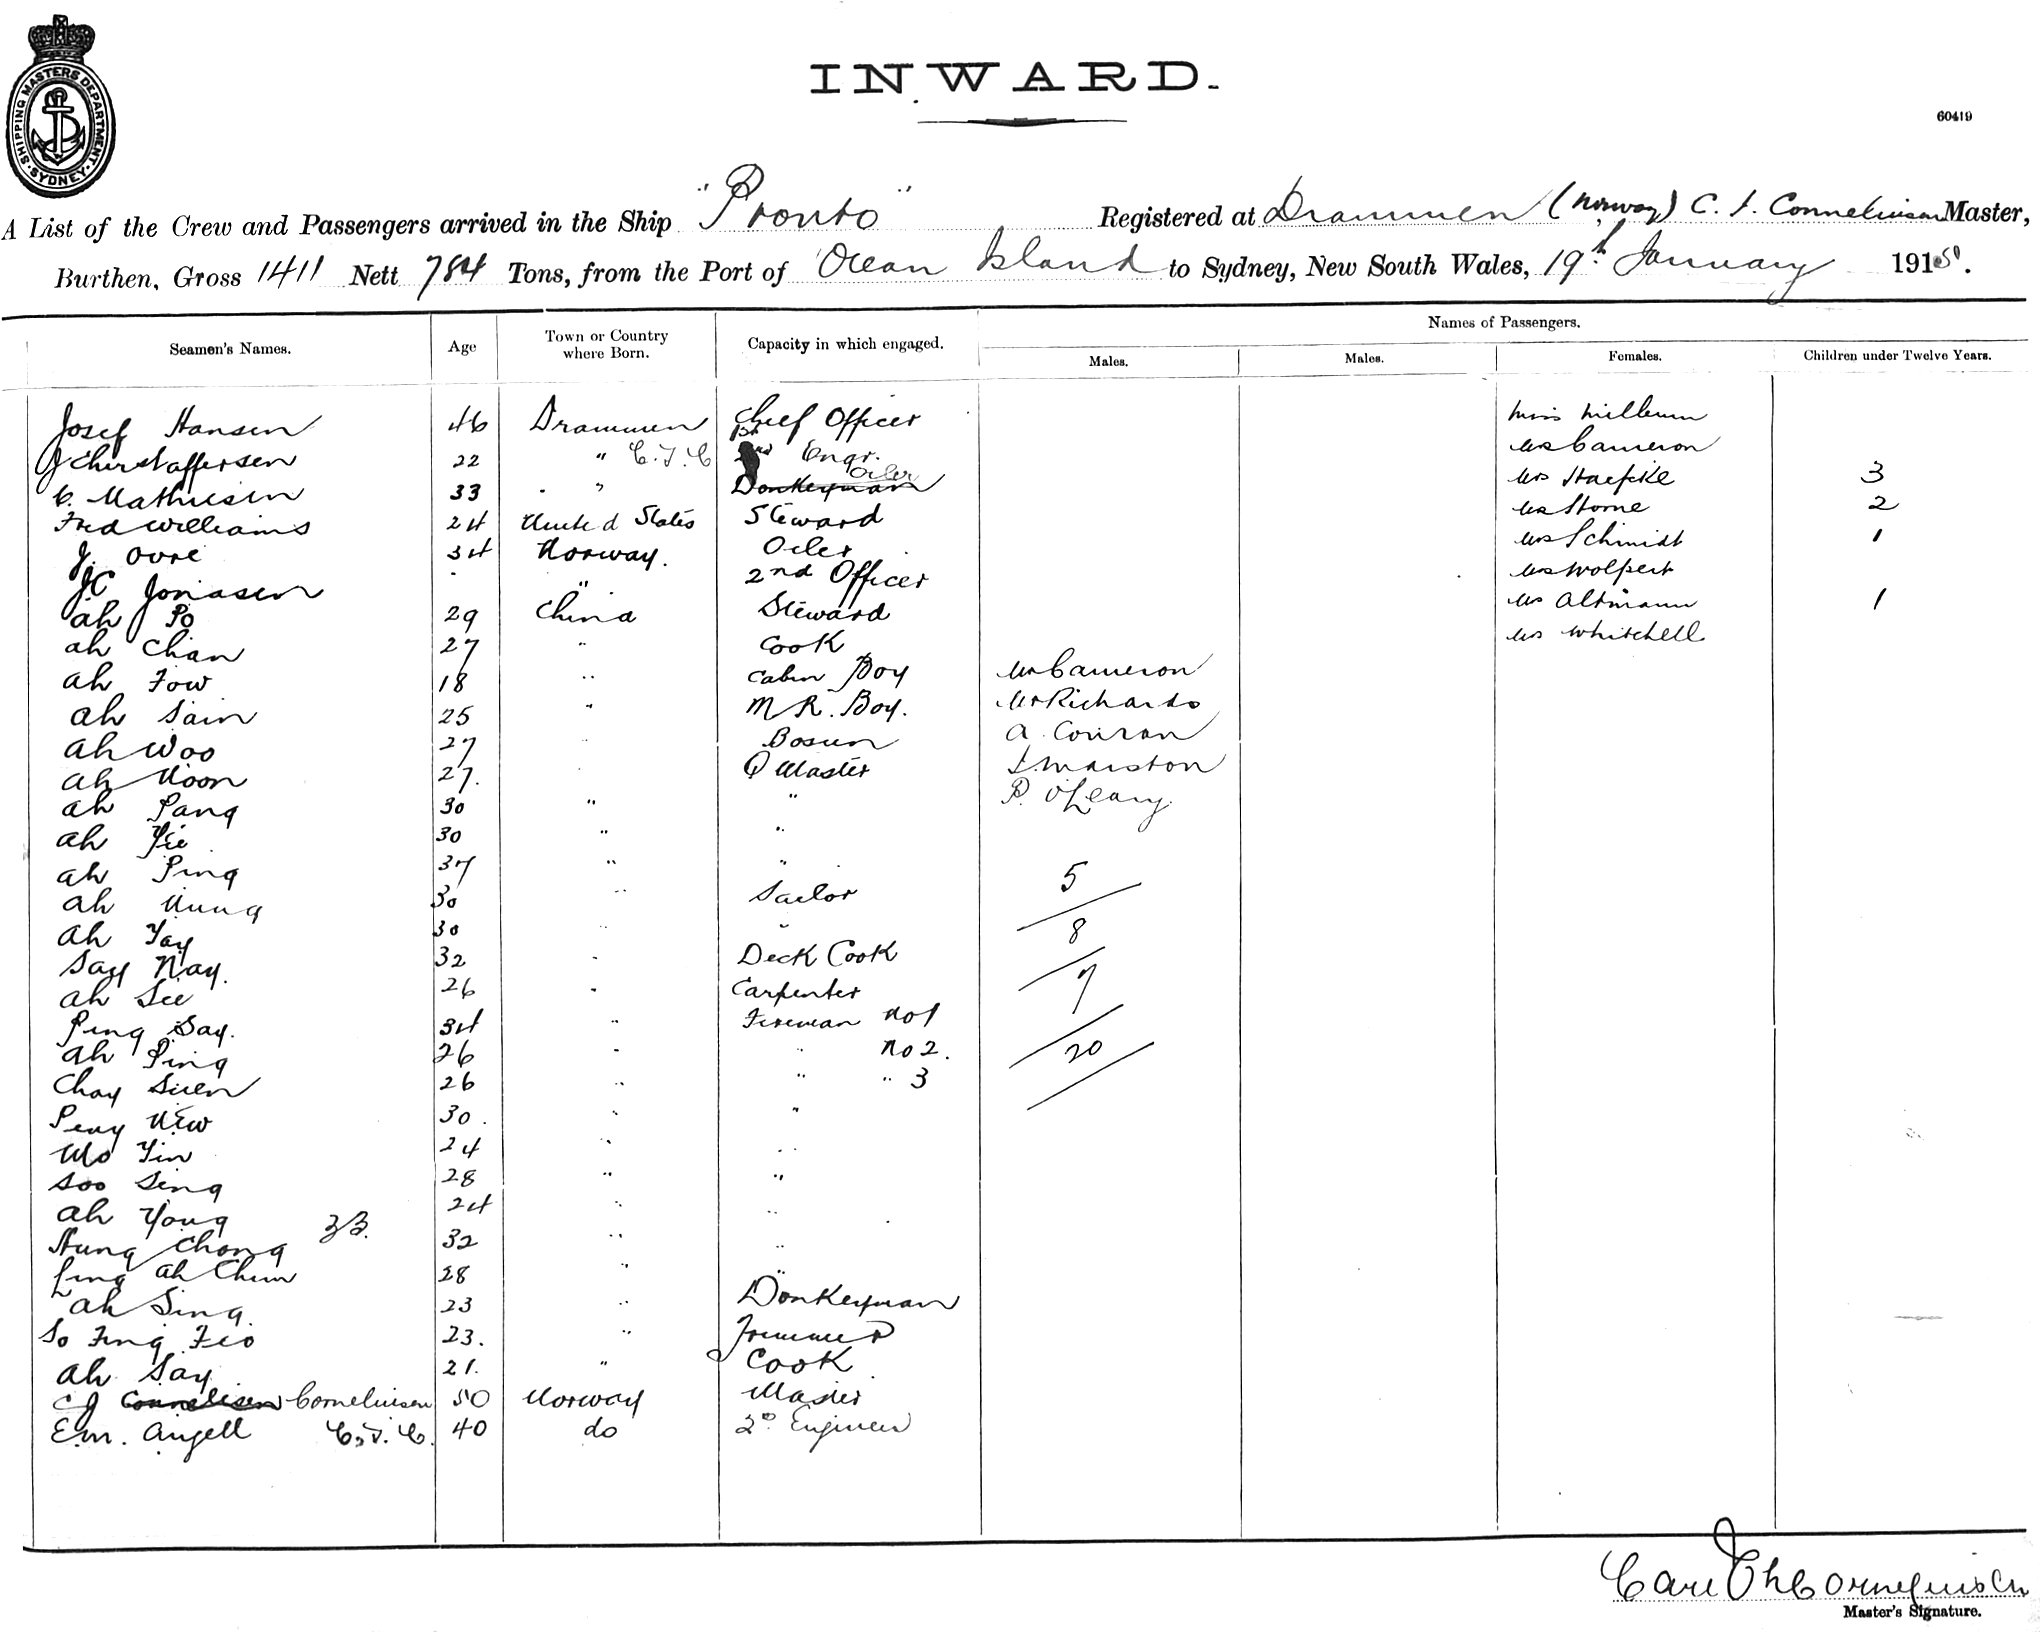 SHIPPING MASTERS DEPARTMENT
SYDNEY
INWARD.
60419
A List of the Crew and Passengers arrived in the Ship "Pronto" Registered at Drammen (Norway) C. T. Corneliusen Master,
Burthen, Gross 1411 Nett 784 Tons, from the Port of Ocean Island to Sydney, New South Wales, 19th January 1915.
Seamen's Names. Age Town or Country where Born. Capacity in which engaged. Names of Passengers.
Males. Males. Females. Children under Twelve Years.
Josef Hansen 46 Drammen Chief Officer Miss Millburn
J Christaffersen 22 " C.T.C 1st Engr. Mrs Cameron
C. Mathiesen 33 " " Donkeyman Oiler Mrs Haefcke 3
Fred Williams 24 United States Steward Mrs Horne 2
J. Ovre 34 Norway. Oiler Mrs Schmidt 1
JC Jonasen " 2nd Officer Mrs Wolpert
Ah Po 29 China Steward Mrs Altmann 1
Ah Chan 27 " Cook Mrs Whitchell
Ah Fow 18 " Cabin Boy Mr Cameron
Ah Sain 25 " M R. Boy. Mr Richards
Ah Woo 27 Bosun A. Conran
Ah Noon 27. Q Master J. Marston
Ah Pang 30 " " P. O'Leary.
Ah Yie 30 " "
Ah Ping 37 " " 5
Ah Nung 30 " Sailor
Ah Tay 30 " " 8
Say Nay. 32 " Deck Cook
Ah See 26 " Carpenter 7
Ping Say. 34 " Fireman No 1
Ah Ping 26 " " No 2. 20
Chay Suen 26 " " " 3
Peny New 30. " "
Wo Yin 24 " "
Soo Sing 28 " "
Ah Yong 24 " "
33.
Hung Chong 32 " "
Ling Ah Chun 28 " "
Ah Sing. 23 " Donkeyman
So Fing Feo 23. " Trimmer
Ah Say 21. " Cook
C J Cornelisen Corneliusen 50 Norway Master
E.M. Angell C.T.C. 40 do 2nd Engineer
Carl Th Corneliusen
Master's Signature.